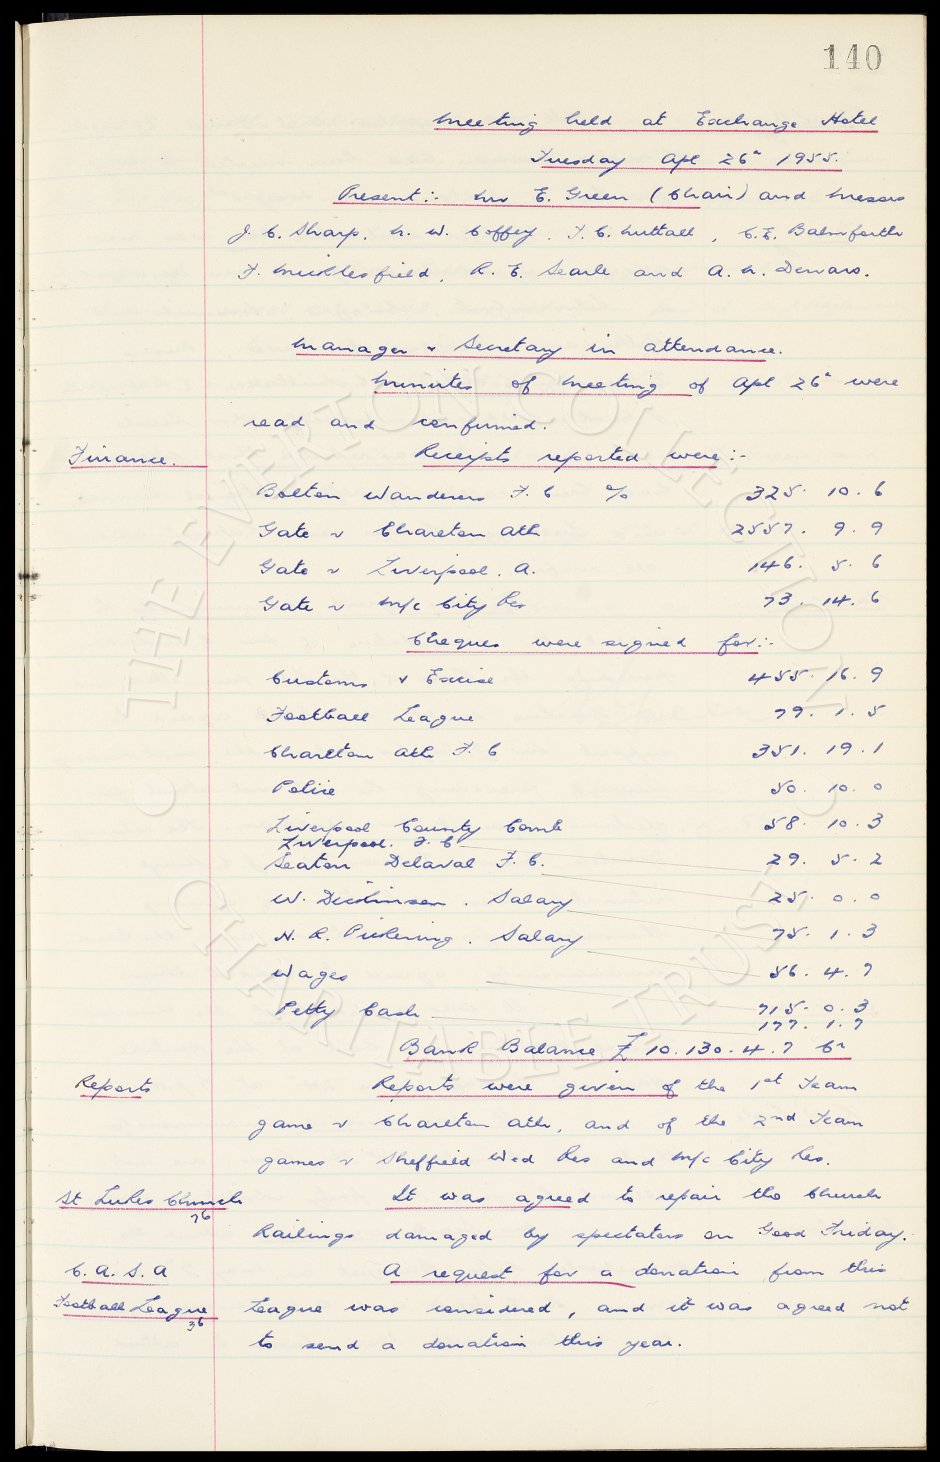 140
Meeting held at Exchange Hotel
Tuesday Apl 26th 1955.
Present:- Mr E. Green (Chair) and Messrs
J. C. Sharp. N. W. Coffey. T. C. Nuttall, C. E. Balmforth
F. Micklesfield, R. E. Searle and A. N. Denaro.
Manager & Secretary in attendance.
Minutes of Meeting of Apl 26th were
read and confirmed.
Finance. Receipts reported were:-
Bolton Wanderers F. C % 325. 10. 6
Gate v Charlton Ath 2557. 9. 9
Gate v Liverpool. A. 146. 5. 6
Gate v M/c City Res 73. 14. 6
Cheques were signed for:-
Customs & Excise 455. 16. 9
Football League 79. 1. 5
Charlton Ath F. C 351. 19. 1
Police 50. 10. 0
Liverpool County Comb 58. 10. 3
Liverpool. F. C
Seaton Delaval F. C. 29. 5. 2
W. Dickinson. Salary 25. 0. 0
H. R. Pickering. Salary 75. 1. 3
Wages 56. 4. 7
Petty Cash 715. 0. 3
177. 1. 7
Bank Balance £ 10.130. 4. 7 Cr
Reports Reports were given of the 1st Team
game v Charlton Ath, and of the 2nd Team
games v Sheffield Wed Res and M/c City Res.
St Lukes Church It was agreed to repair the Church
76
Railings damaged by spectators on Good Friday.
C. A. S. A A request for a donation from this
Football League League was considered, and it was agreed not
36
to send a donation this year.
© THE EVERTON COLLECTION
CHARITABLE TRUST